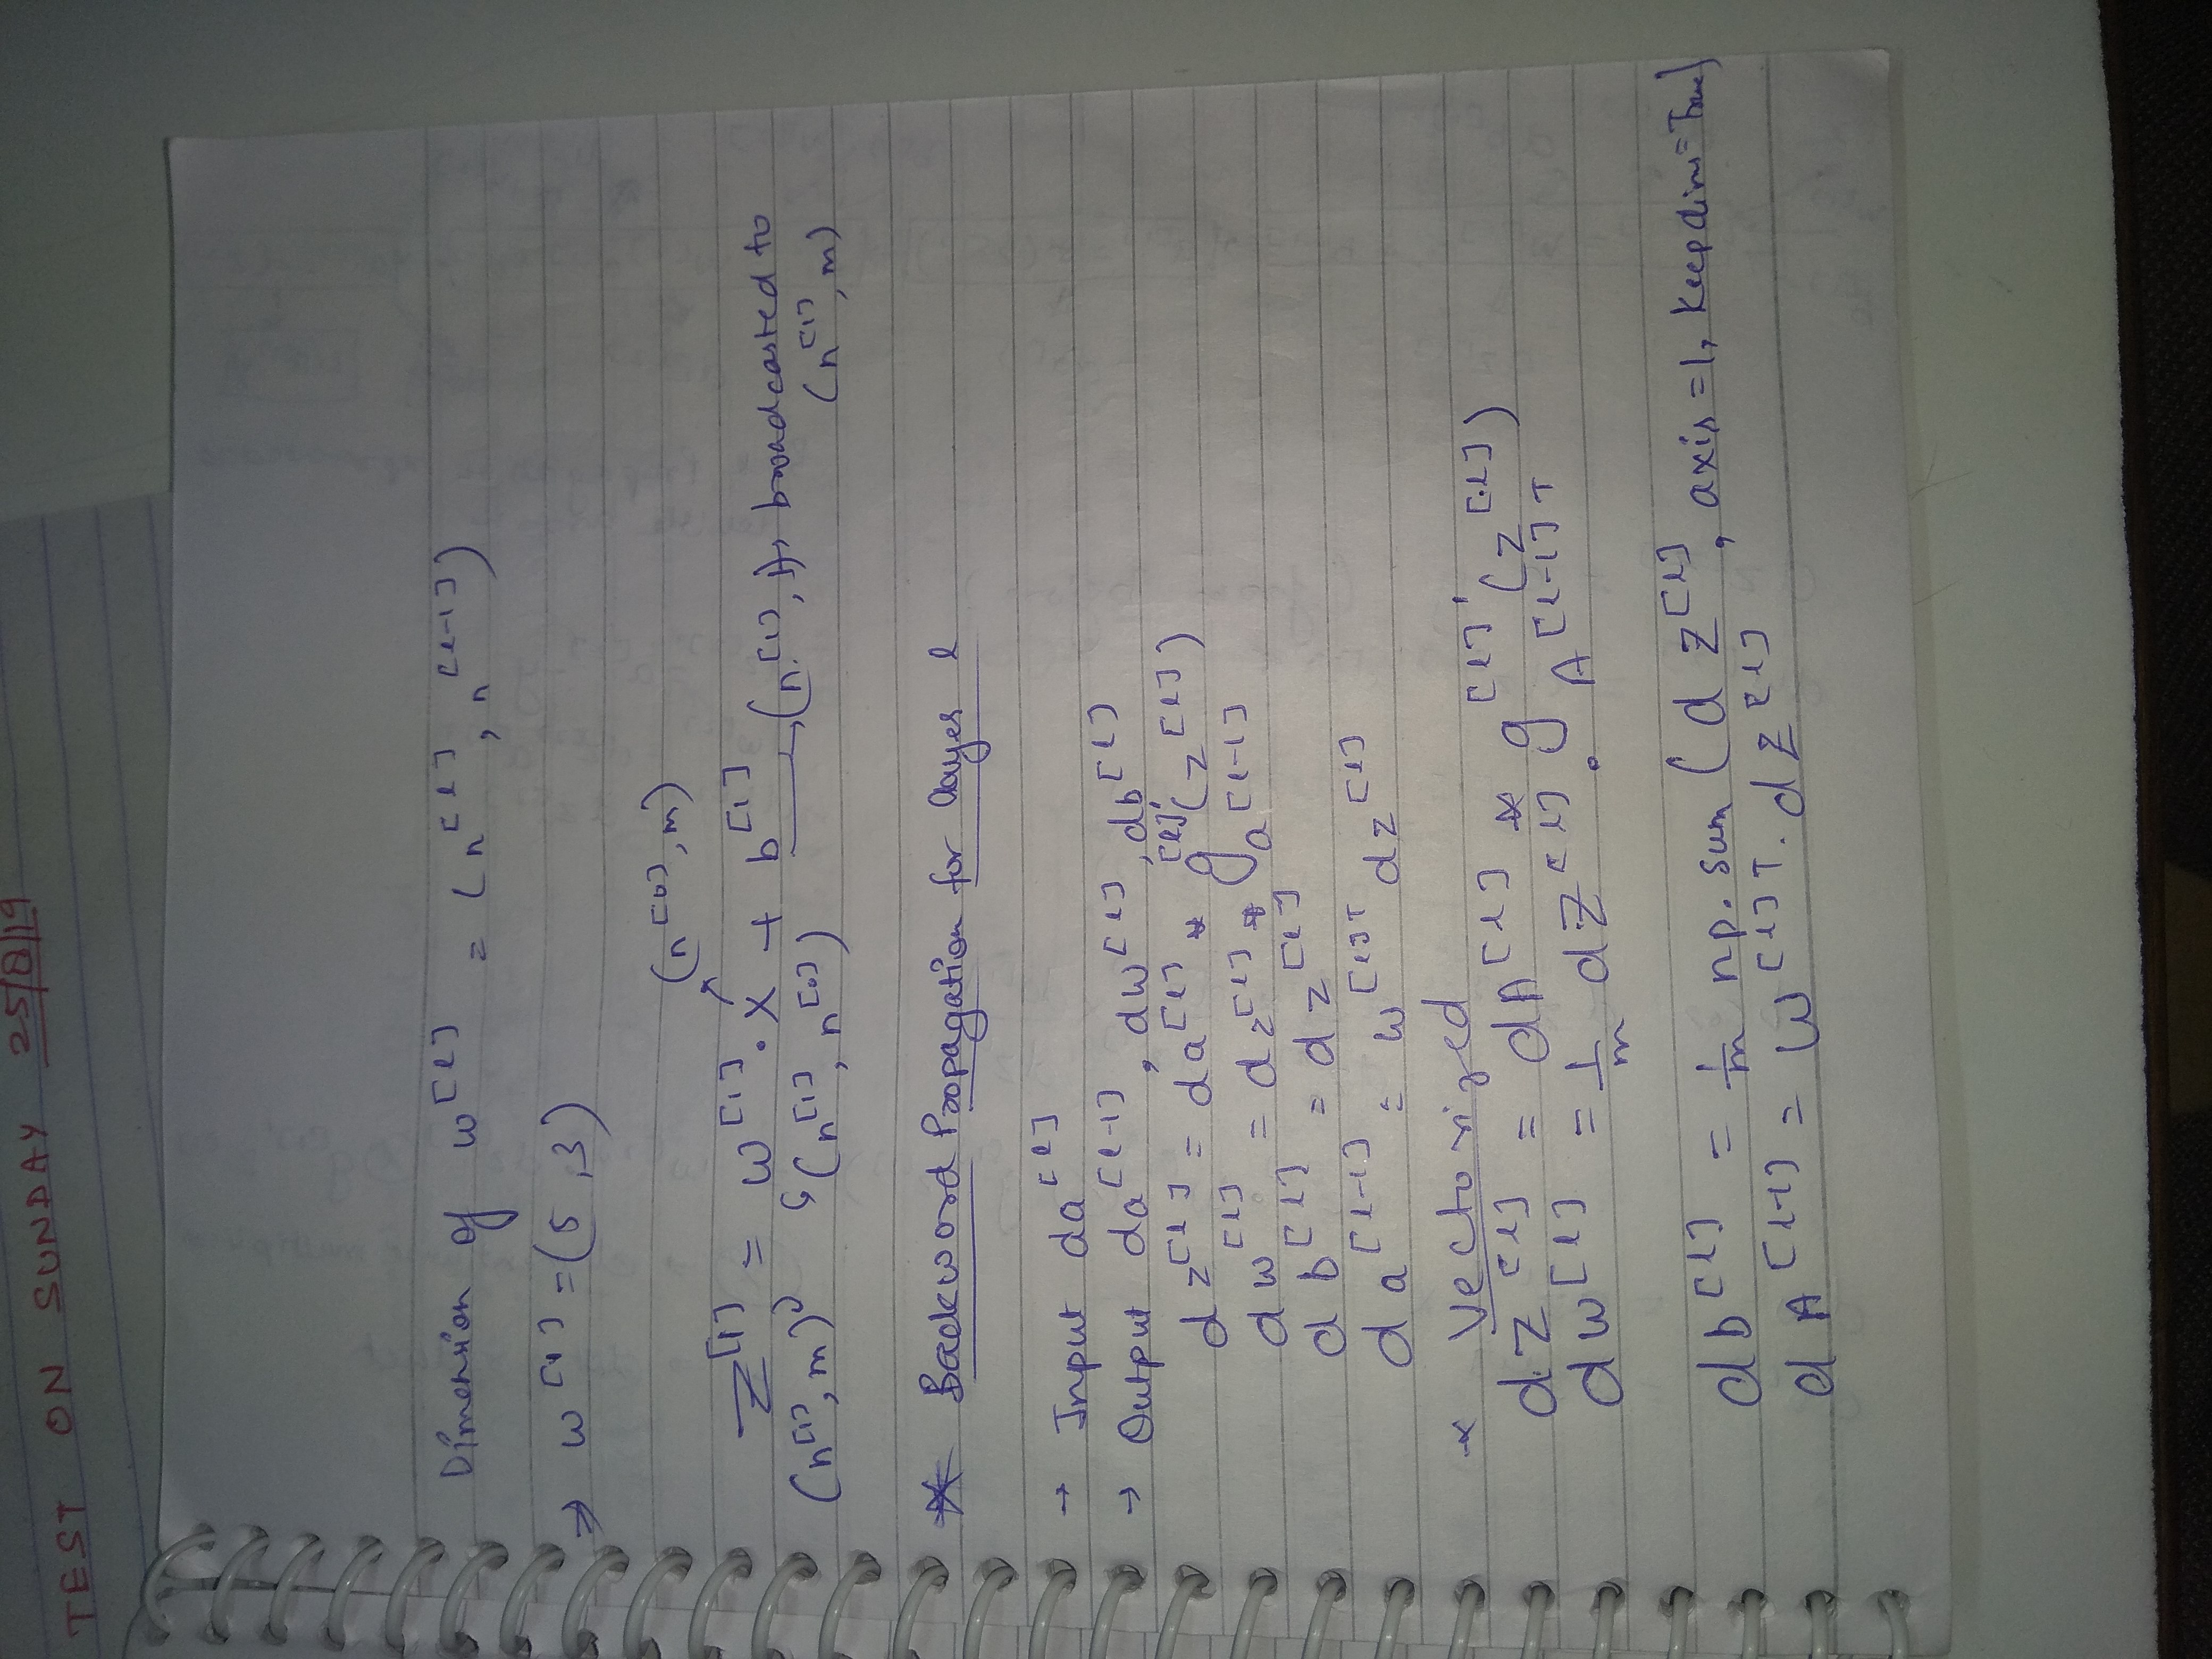 TEST ON SUNDAY 25/8/19
Dimension of w[l] = (n[l], n[l-1])
⇒ w[1] = (5,3)
(n[0], m)
Z[1] = w[1] . X + b[1]
(n[1], m) (n[1], n[0]) (n[1], 1) → broadcasted to
(n[1], m)
* Backword Propagation for layer l
→ Input da[l]
→ Output da[l-1], dw[l], db[l]
dz[l] = da[l] * g[l]'(z[l])
dw[l] = dz[l] * a[l-1]
db[l] = dz[l]
da[l-1] = w[l]T dz[l]
* Vectorized
dZ[l] = dA[l] * g[l]'(z[l])
dw[l] = 1/m dZ[l] . A[l-1]T
db[l] = 1/m np.sum(dZ[l], axis=1, keepdims=True)
dA[l-1] = W[l]T . dZ[l]